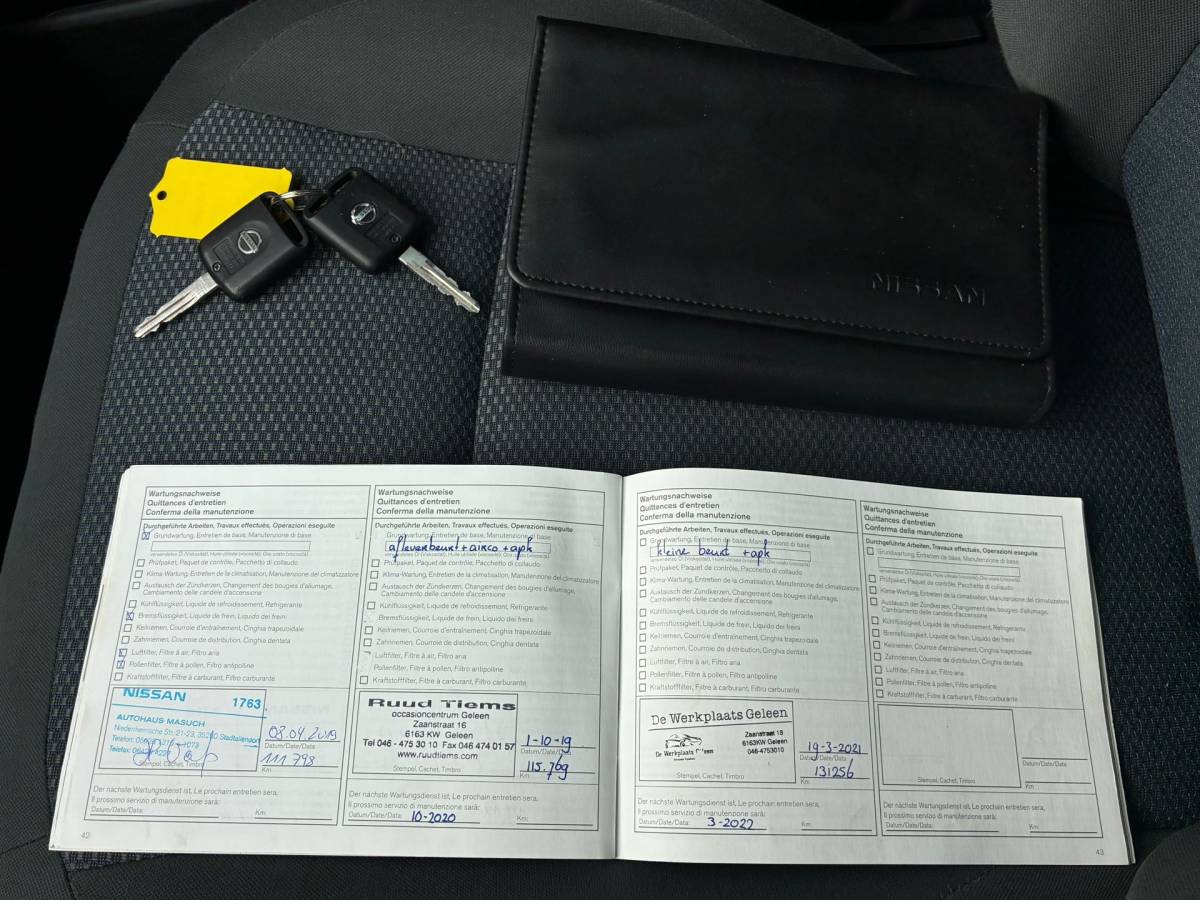 NISSAN
Wartungsnachweise
Quittances d'entretien
Conferma della manutenzione
Durchgeführte Arbeiten, Travaux effectués, Operazioni eseguite
Grundwartung, Entretien de base, Manutenzione di base
verwendetes Öl (Viskosität), Huile utilisée (viscosité), Olio usato (viscosità)
Prüfpaket, Paquet de contrôle, Pacchetto di collaudo
Klima-Wartung, Entretien de la climatisation, Manutenzione del climatizzatore
Austausch der Zündkerzen, Changement des bougies d'allumage,
Cambiamento delle candele d'accensione
Kühlflüssigkeit, Liquide de refroidissement, Refrigerante
Bremsflüssigkeit, Liquide de frein, Liquido dei freini
Keilriemen, Courroie d'entraînement, Cinghia trapezoidale
Zahnriemen, Courroie de distribution, Cinghia dentata
Luftfilter, Filtre à air, Filtro aria
Pollenfilter, Filtre à pollen, Filtro antipolline
Kraftstofffilter, Filtre à carburant, Filtro carburante
NISSAN 1763
AUTOHAUS MASUCH
Niederrheinische Str. 21-23, 35260 Stadtallendorf
Telefon:
Telefax:
Stempel, Cachet, Timbro
08.04.2019
Datum/Date/Data
111 798
Km
Der nächste Wartungsdienst ist, Le prochain entretien sera,
Il prossimo servizio di manutenzione sarà:
Datum/Date/Data: Km:
42
Wartungsnachweise
Quittances d'entretien
Conferma della manutenzione
Durchgeführte Arbeiten, Travaux effectués, Operazioni eseguite
Grundwartung, Entretien de base, Manutenzione di base
afleverbeurt + airco + apk
verwendetes Öl (Viskosität), Huile utilisée (viscosité), Olio usato (viscosità)
Prüfpaket, Paquet de contrôle, Pacchetto di collaudo
Klima-Wartung, Entretien de la climatisation, Manutenzione del climatizzatore
Austausch der Zündkerzen, Changement des bougies d'allumage,
Cambiamento delle candele d'accensione
Kühlflüssigkeit, Liquide de refroidissement, Refrigerante
Bremsflüssigkeit, Liquide de frein, Liquido dei freini
Keilriemen, Courroie d'entraînement, Cinghia trapezoidale
Zahnriemen, Courroie de distribution, Cinghia dentata
Luftfilter, Filtre à air, Filtro aria
Pollenfilter, Filtre à pollen, Filtro antipolline
Kraftstofffilter, Filtre à carburant, Filtro carburante
Ruud Tiems
occasioncentrum Geleen
Zaanstraat 16
6163 KW Geleen
Tel 046 - 475 30 10 Fax 046 474 01 57
www.ruudtiems.com
Stempel, Cachet, Timbro
1-10-19
Datum/Date/Data
115.769
Km
Der nächste Wartungsdienst ist, Le prochain entretien sera,
Il prossimo servizio di manutenzione sarà:
Datum/Date/Data: 10-2020 Km:
Wartungsnachweise
Quittances d'entretien
Conferma della manutenzione
Durchgeführte Arbeiten, Travaux effectués, Operazioni eseguite
Grundwartung, Entretien de base, Manutenzione di base
kleine beurt + apk
verwendetes Öl (Viskosität), Huile utilisée (viscosité), Olio usato (viscosità)
Prüfpaket, Paquet de contrôle, Pacchetto di collaudo
Klima-Wartung, Entretien de la climatisation, Manutenzione del climatizzatore
Austausch der Zündkerzen, Changement des bougies d'allumage,
Cambiamento delle candele d'accensione
Kühlflüssigkeit, Liquide de refroidissement, Refrigerante
Bremsflüssigkeit, Liquide de frein, Liquido dei freini
Keilriemen, Courroie d'entraînement, Cinghia trapezoidale
Zahnriemen, Courroie de distribution, Cinghia dentata
Luftfilter, Filtre à air, Filtro aria
Pollenfilter, Filtre à pollen, Filtro antipolline
Kraftstofffilter, Filtre à carburant, Filtro carburante
De Werkplaats Geleen
Zaanstraat 18
6163KW Geleen
046-4753010
De Werkplaats
Stempel, Cachet, Timbro
19-3-2021
Datum/Date/Data
131256
Km
Der nächste Wartungsdienst ist, Le prochain entretien sera,
Il prossimo servizio di manutenzione sarà:
Datum/Date/Data: 3-2022 Km:
Wartungsnachweise
Quittances d'entretien
Conferma della manutenzione
Durchgeführte Arbeiten, Travaux effectués, Operazioni eseguite
Grundwartung, Entretien de base, Manutenzione di base
verwendetes Öl (Viskosität), Huile utilisée (viscosité), Olio usato (viscosità)
Prüfpaket, Paquet de contrôle, Pacchetto di collaudo
Klima-Wartung, Entretien de la climatisation, Manutenzione del climatizzatore
Austausch der Zündkerzen, Changement des bougies d'allumage,
Cambiamento delle candele d'accensione
Kühlflüssigkeit, Liquide de refroidissement, Refrigerante
Bremsflüssigkeit, Liquide de frein, Liquido dei freini
Keilriemen, Courroie d'entraînement, Cinghia trapezoidale
Zahnriemen, Courroie de distribution, Cinghia dentata
Luftfilter, Filtre à air, Filtro aria
Pollenfilter, Filtre à pollen, Filtro antipolline
Kraftstofffilter, Filtre à carburant, Filtro carburante
Stempel, Cachet, Timbro
Datum/Date/Data
Km
Der nächste Wartungsdienst ist, Le prochain entretien sera,
Il prossimo servizio di manutenzione sarà:
Datum/Date/Data: Km:
43